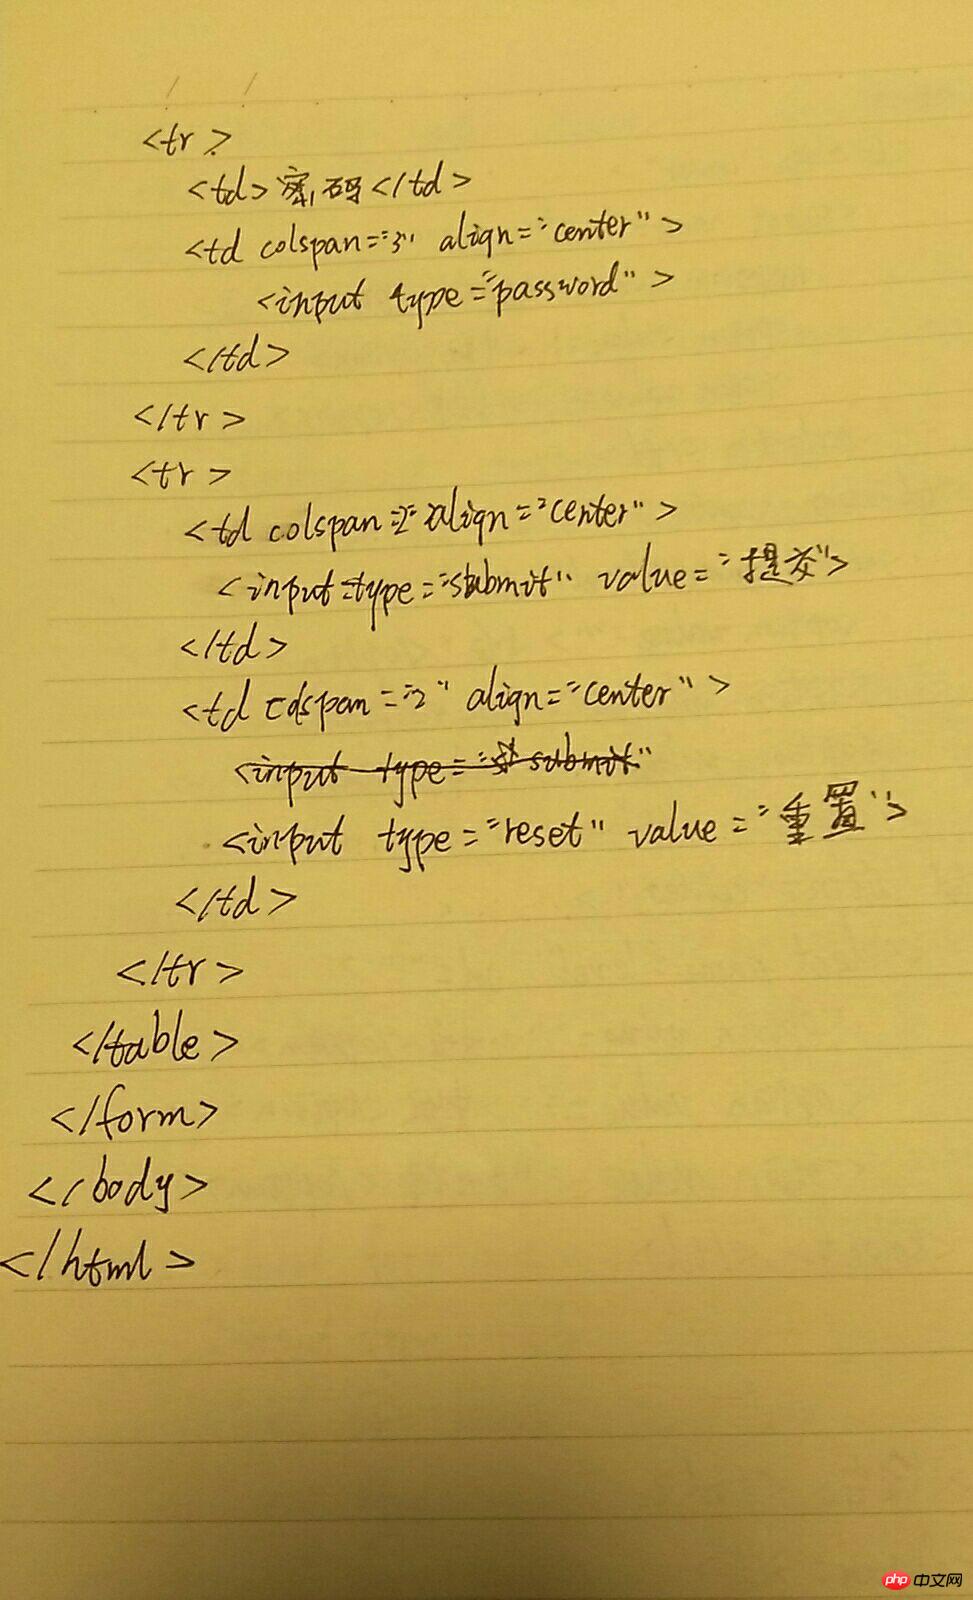 <tr>
<td>密码</td>
<td colspan="3" align="center">
<input type="password">
</td>
</tr>
<tr>
<td colspan="2" align="center">
<input type="submit" value="提交">
</td>
<td colspan="2" align="center">
<input type="submit"
<input type="reset" value="重置">
</td>
</tr>
</table>
</form>
</body>
</html>
php 中文网